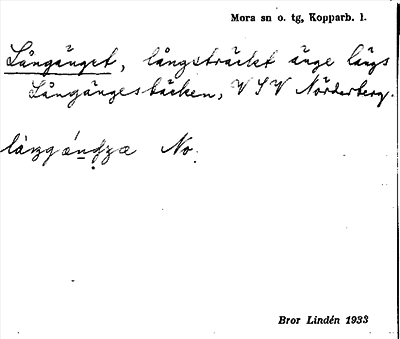 Mora sn o. tg, Kopparb. l.
Långänget, långsträckt änge längs
Långängesbäcken, V S V Nörderberg.
No.
Bror Lindén 1933